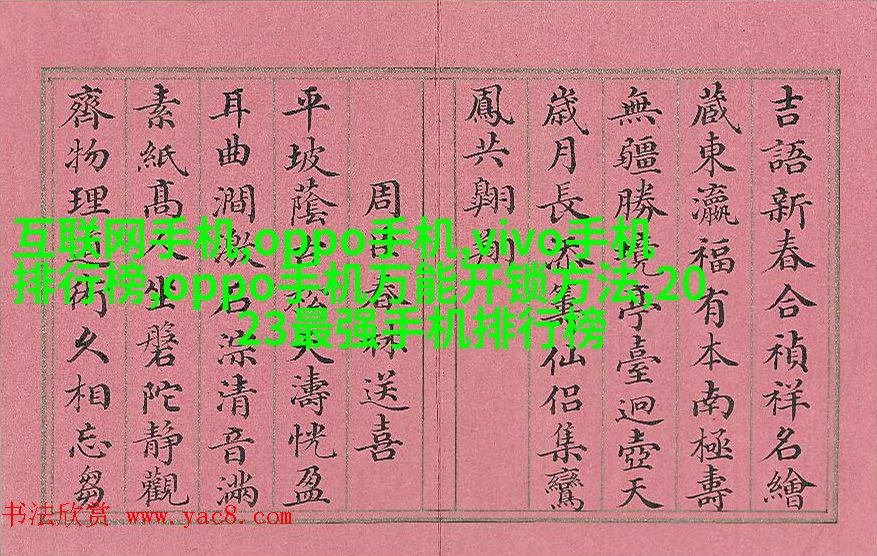 吉語新春合禎祥名繪
蔵東瀛福有本南極壽
無疆勝境亭臺迥壺天
歲月長添筭仙侶集鸞
鳳共翺翔
周春送喜
平坡蔭古松天濤恍盈
耳曲澗激石深清音滿
素紙高人坐磐陀靜觀
齊物理道術久相忘芻
互联网手机,oppo手机,vivo手机
排行榜,oppo手机万能开锁方法,20
23最强手机排行榜
书法欣赏 www.yac8.com